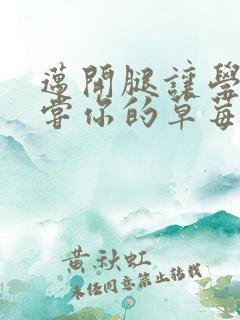 邁開腿讓學
嘗你的草莓
黃秋虹
未经同意禁止转载